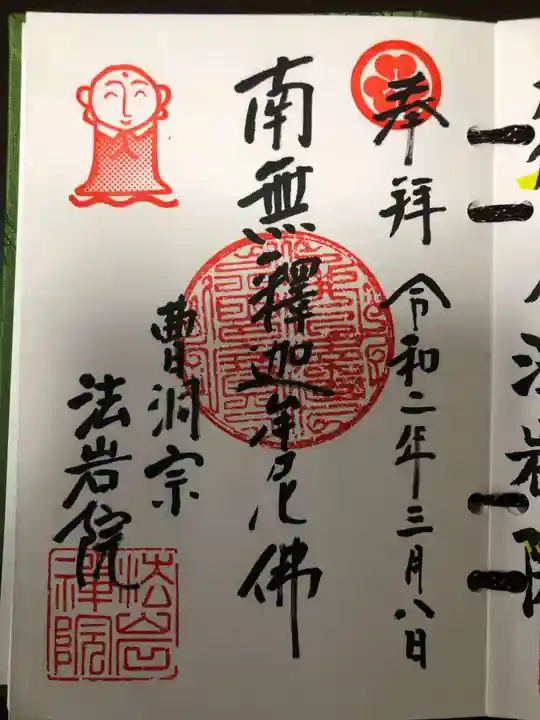 奉拜 令和二年三月八日
南無釋迦牟尼佛
曹洞宗
法岩院
法岩
禅院